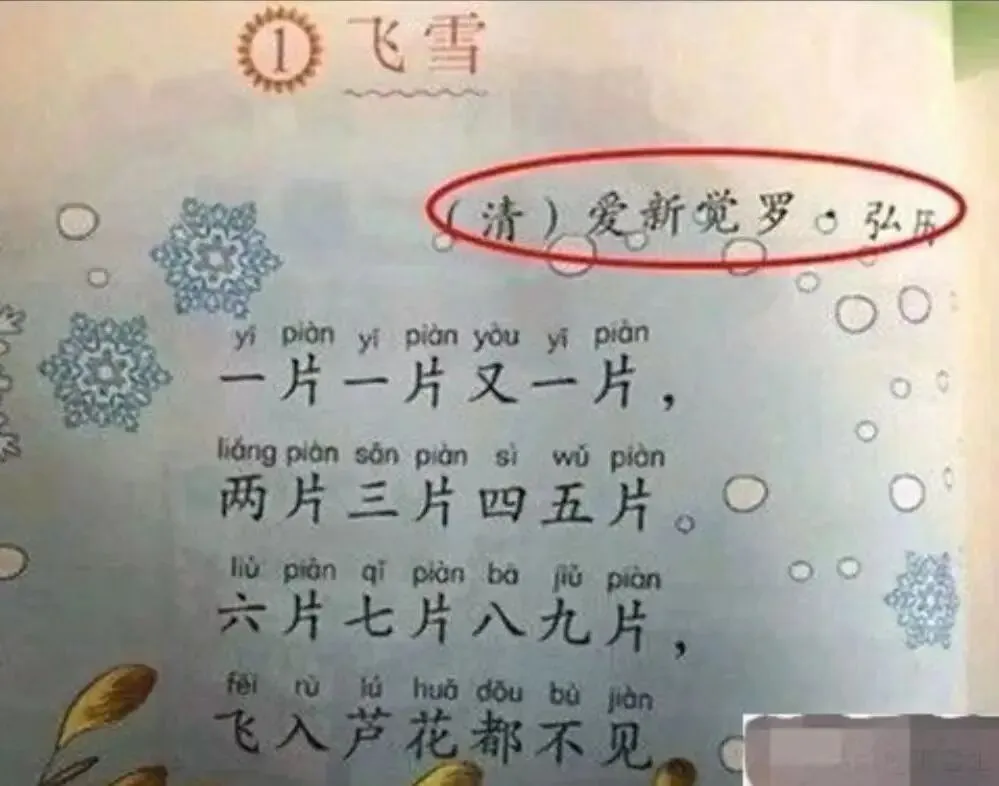 1 飞雪
（清）爱新觉罗·弘历
yī piàn yī piàn yòu yī piàn
一片一片又一片，
liǎng piàn sān piàn sì wǔ piàn
两片三片四五片。
liù piàn qī piàn bā jiǔ piàn
六片七片八九片，
fēi rù lú huā dōu bù jiàn
飞入芦花都不见